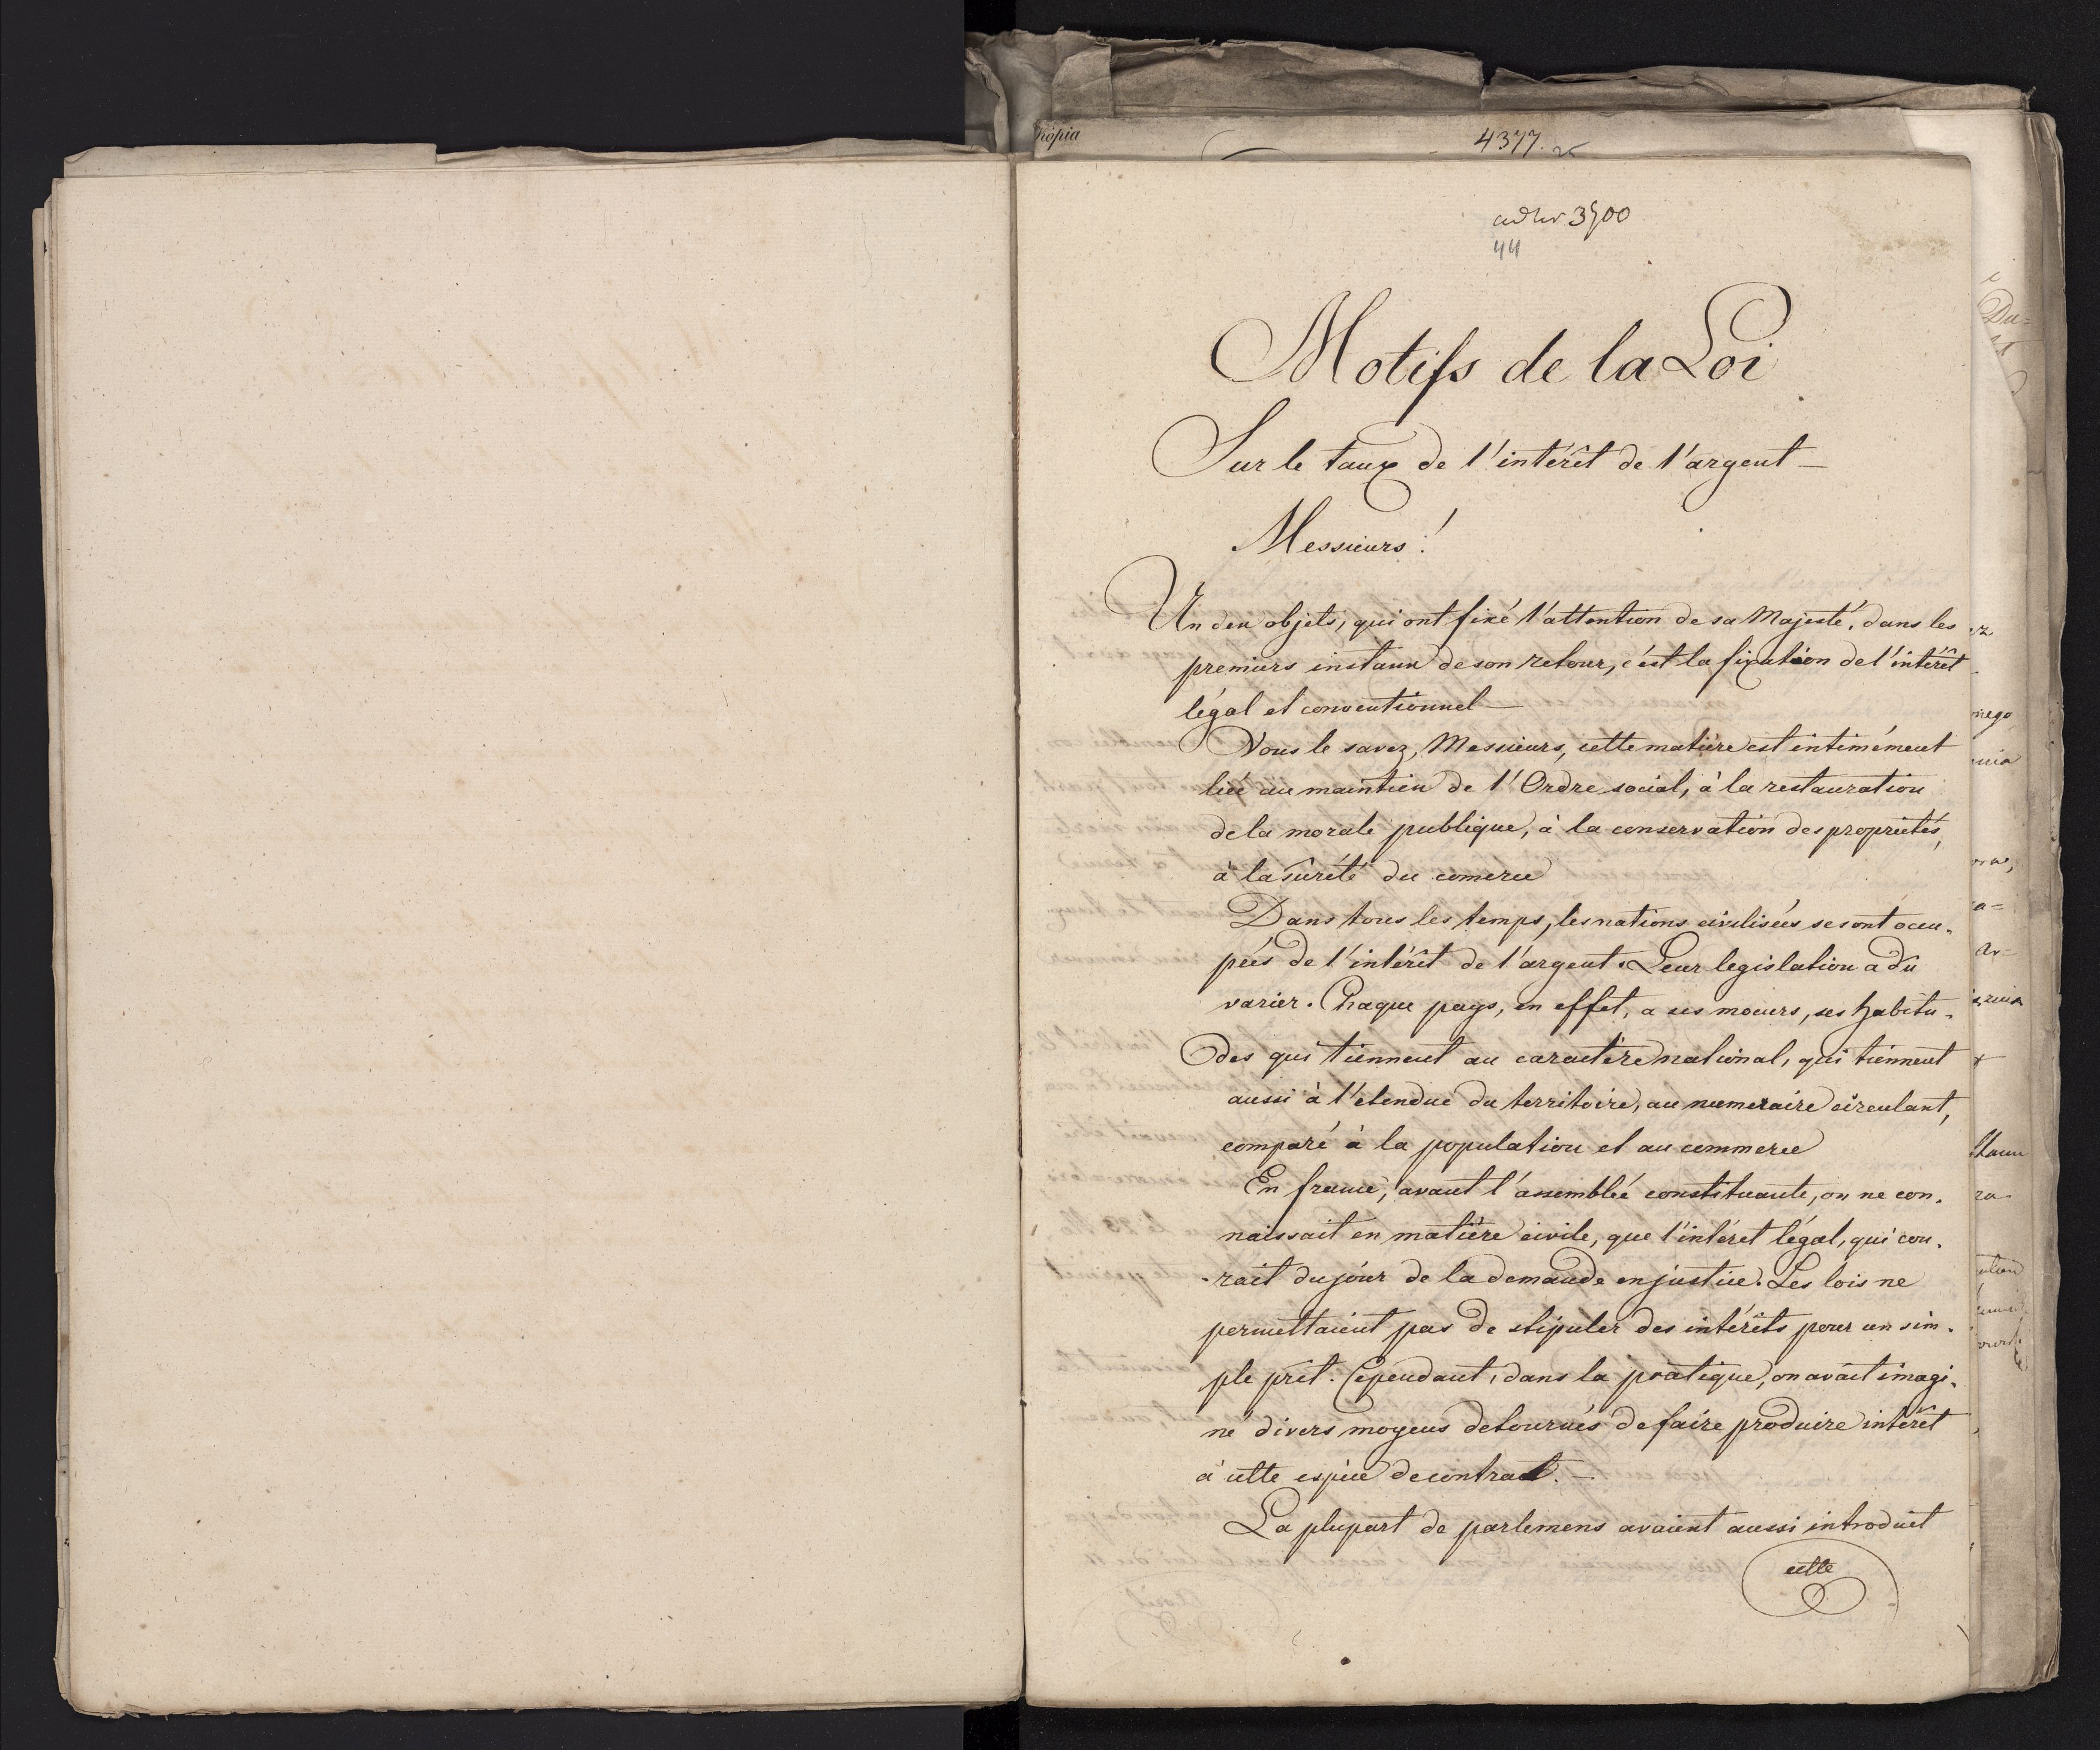 kópia
4377.
ad Nr 3500
44
Motifs de la Loi
Sur le taux de l'intérêt de l'argent —
Messieurs!
Un deu objets, qui ont fixé l'attention de sa Majesté, dans les
premiers instann de son retour, c'est la fixation de l'intérêt
légal et conventionnel —
Vous le savez, Messieurs, cette matière est intimément
liée au maintien de l'Ordre social, à la restauration
de la morale publique, à la conservation des propriétés,
à la sûrété du comerce
Dans tous les temps, les nations civilisées se sont occu-
pées de l'intérêt de l'argent. Leur legislation a dû
varier. Chaque pays, en effet, a ses moeurs, ses habitu-
des qui tiennent au caractère national, qui tiennent
aussi à l'etendue du territoire, au numeraire circulant,
comparé à la population et au commerce
En france, avant l'assemblée constituante, on ne con-
naissait en matière civile, que l'intéret légal, qui cou-
-rait du jour de la demande en justice. Les lois ne
permettaient pas de stipuler des intérêts pour un sim-
ple prêt. Cependant, dans la pratique, on avait imagi-
né divers moyens detournés de faire produire intérêt
à cette espèce de contract. —
La plupart de parlemens avaient aussi introduit
cette